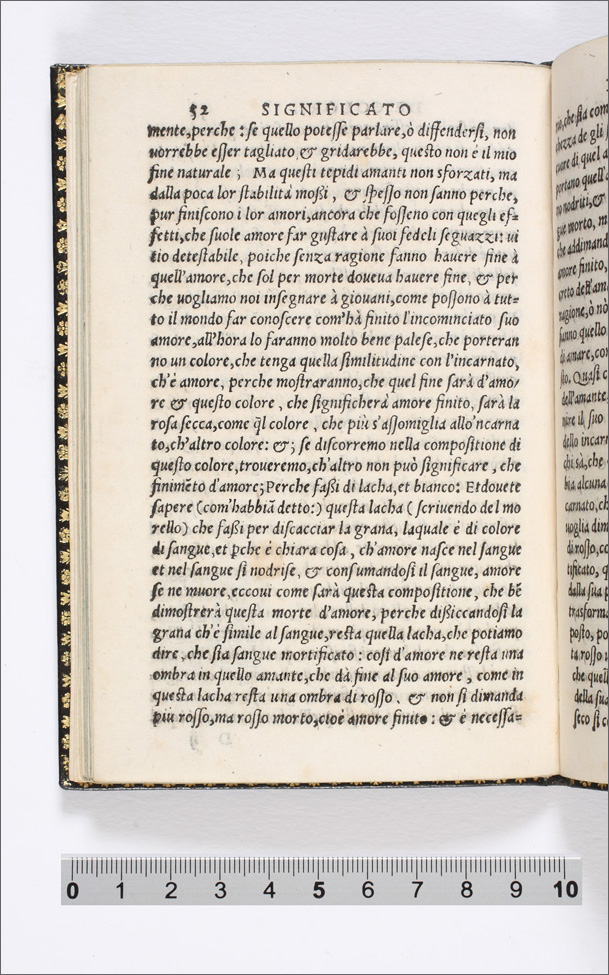 52 SIGNIFICATO
mente,perche : se quello potesse parlare,ò diffendersi, non
uorrebbe esser tagliato & gridarebbe, questo non è il mio
fine naturale ; Ma questi tepidi amanti non sforzati, ma
dalla poca lor stabilità moßi , & spesso non sanno perche,
pur finiscono i lor amori,ancora che fosseno con quegli ef=
fetti,che suole amore far gustare à suoi fedeli seguazzi: ui
tio detestabile, poiche senza ragione fanno hauere fine à
quell'amore,che sol per morte doueua hauere fine, & per
che uogliamo noi insegnare à giouani,come possono à tut=
to il mondo far conoscere com'hà finito l'incominciato suo
amore,all'hora lo faranno molto bene palese,che porteran
no un colore,che tenga quella similitudine con l'incarnato,
ch'è amore, perche mostraranno,che quel fine sarà d'amo/
re & questo colore , che significherà amore finito, sarà la
rosa secca,come q̃l colore , che più s'assomiglia allo'ncarna
to,ch'altro colore: &; se discorremo nella compositione di
questo colore,troueremo,ch'altro non può significare , che
finimẽto d'amore;Perche faßi di lacha,et bianco: Et douete
sapere (com'habbiã detto:) questa lacha ( scriuendo del mo
rello) che faßi per discacciar la grana, laquale è di colore
di sangue,et p̃che è chiara cosa , ch'amore nasce nel sangue
et nel sangue si nodrise, & consumandosi il sangue, amore
se ne muore,eccoui come sarà questa compositione, che bẽ
dimostrerà questa morte d'amore, perche dißiccandosi la
grana ch'è simile al sangue,resta quella lacha,che potiamo
dire, che sia sangue mortificato : così d'amore ne resta una
ombra in quello amante,che dà fine al suo amore , come in
questa lacha resta una ombra di rosso. & non si dimanda
più rosso,ma rosso morto,cioè amore finito : & è necessa=
0 1 2 3 4 5 6 7 8 9 10